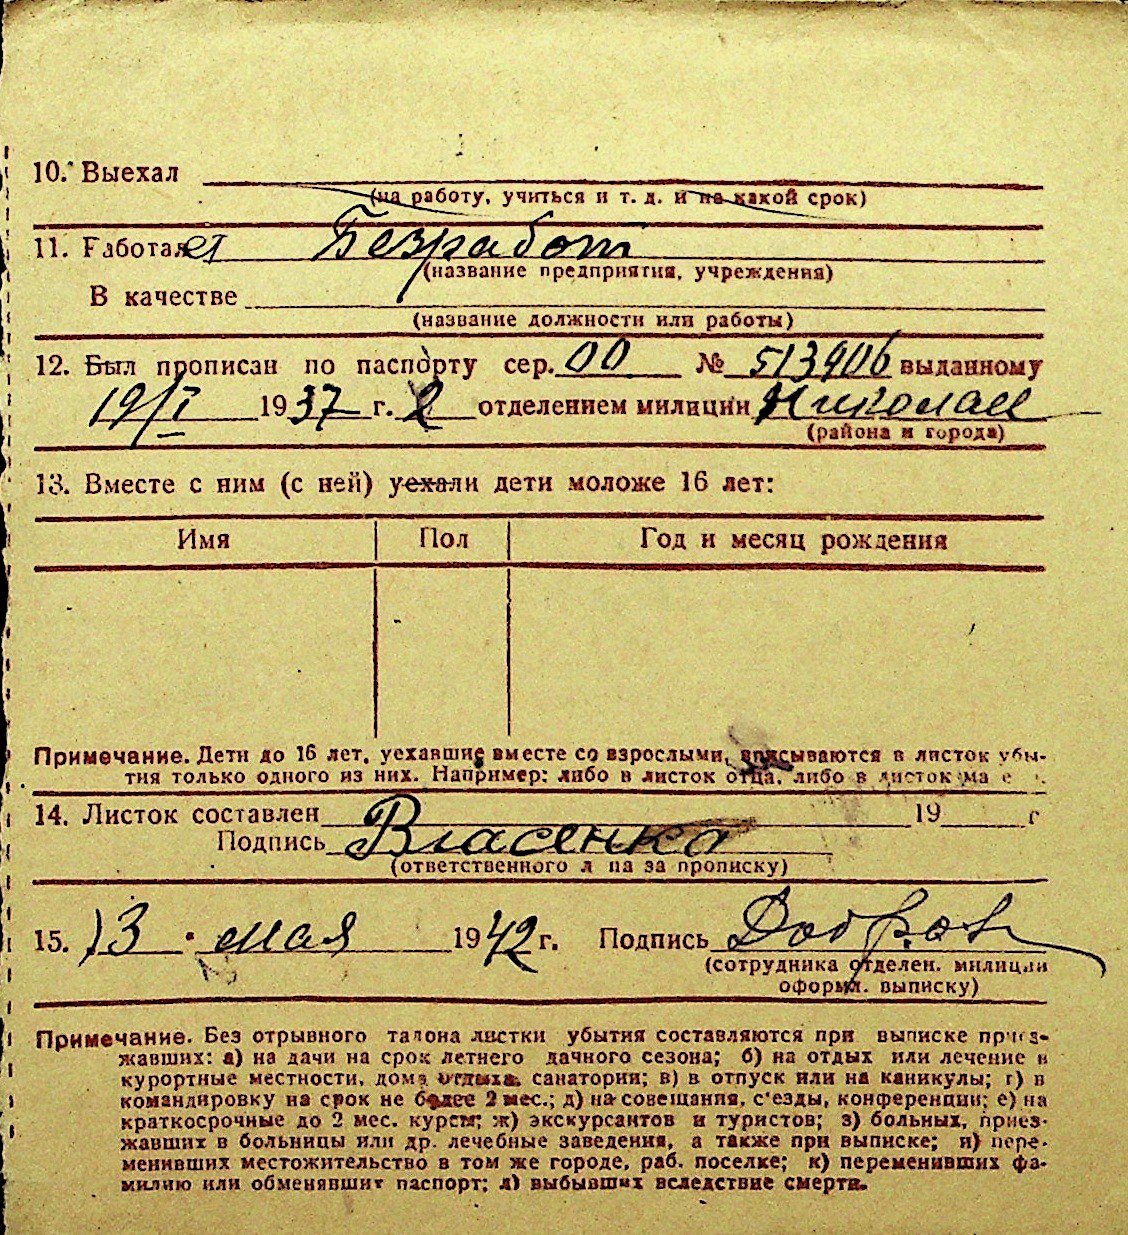 10. Выехал
(на работу, учиться и т. д. и на какой срок)
11. Работает Безработ
(название предприятия, учреждения)
В качестве
(название должности или работы)
12. Был прописан по паспорту сер. 00 № 513906 выданному
19/I 1937 г. 2 отделением милиции Николаев
(района и города)
13. Вместе с ним (с ней) уехали дети моложе 16 лет:
Имя Пол Год и месяц рождения
Примечание. Дети до 16 лет, уехавшие вместе со взрослыми, вписываются в листок убы-
тия только одного из них. Например: либо в листок отца, либо в листок ма е
14. Листок составлен 19 г
Подпись Власенко
(ответственного л ца за прописку)
15. 13 " мая 1942 г. Подпись Добров
(сотрудника отделен. милиции
оформл. выписку)
Примечание. Без отрывного талона листки убытия составляются при выписке приез-
жавших: а) на дачи на срок летнего дачного сезона; б) на отдых или лечение в
курортные местности, дома отдыха, санатории; в) в отпуск или на каникулы; г) в
командировку на срок не более 2 мес.; д) на совещания, с'езды, конференции; е) на
краткосрочные до 2 мес. курсы; ж) экскурсантов и туристов; з) больных, приез-
жавших в больницы или др. лечебные заведения, а также при выписке; и) пере-
менивших местожительство в том же городе, раб. поселке; к) переменивших фа-
милию или обменявшит паспорт; л) выбывших вследствие смерти.